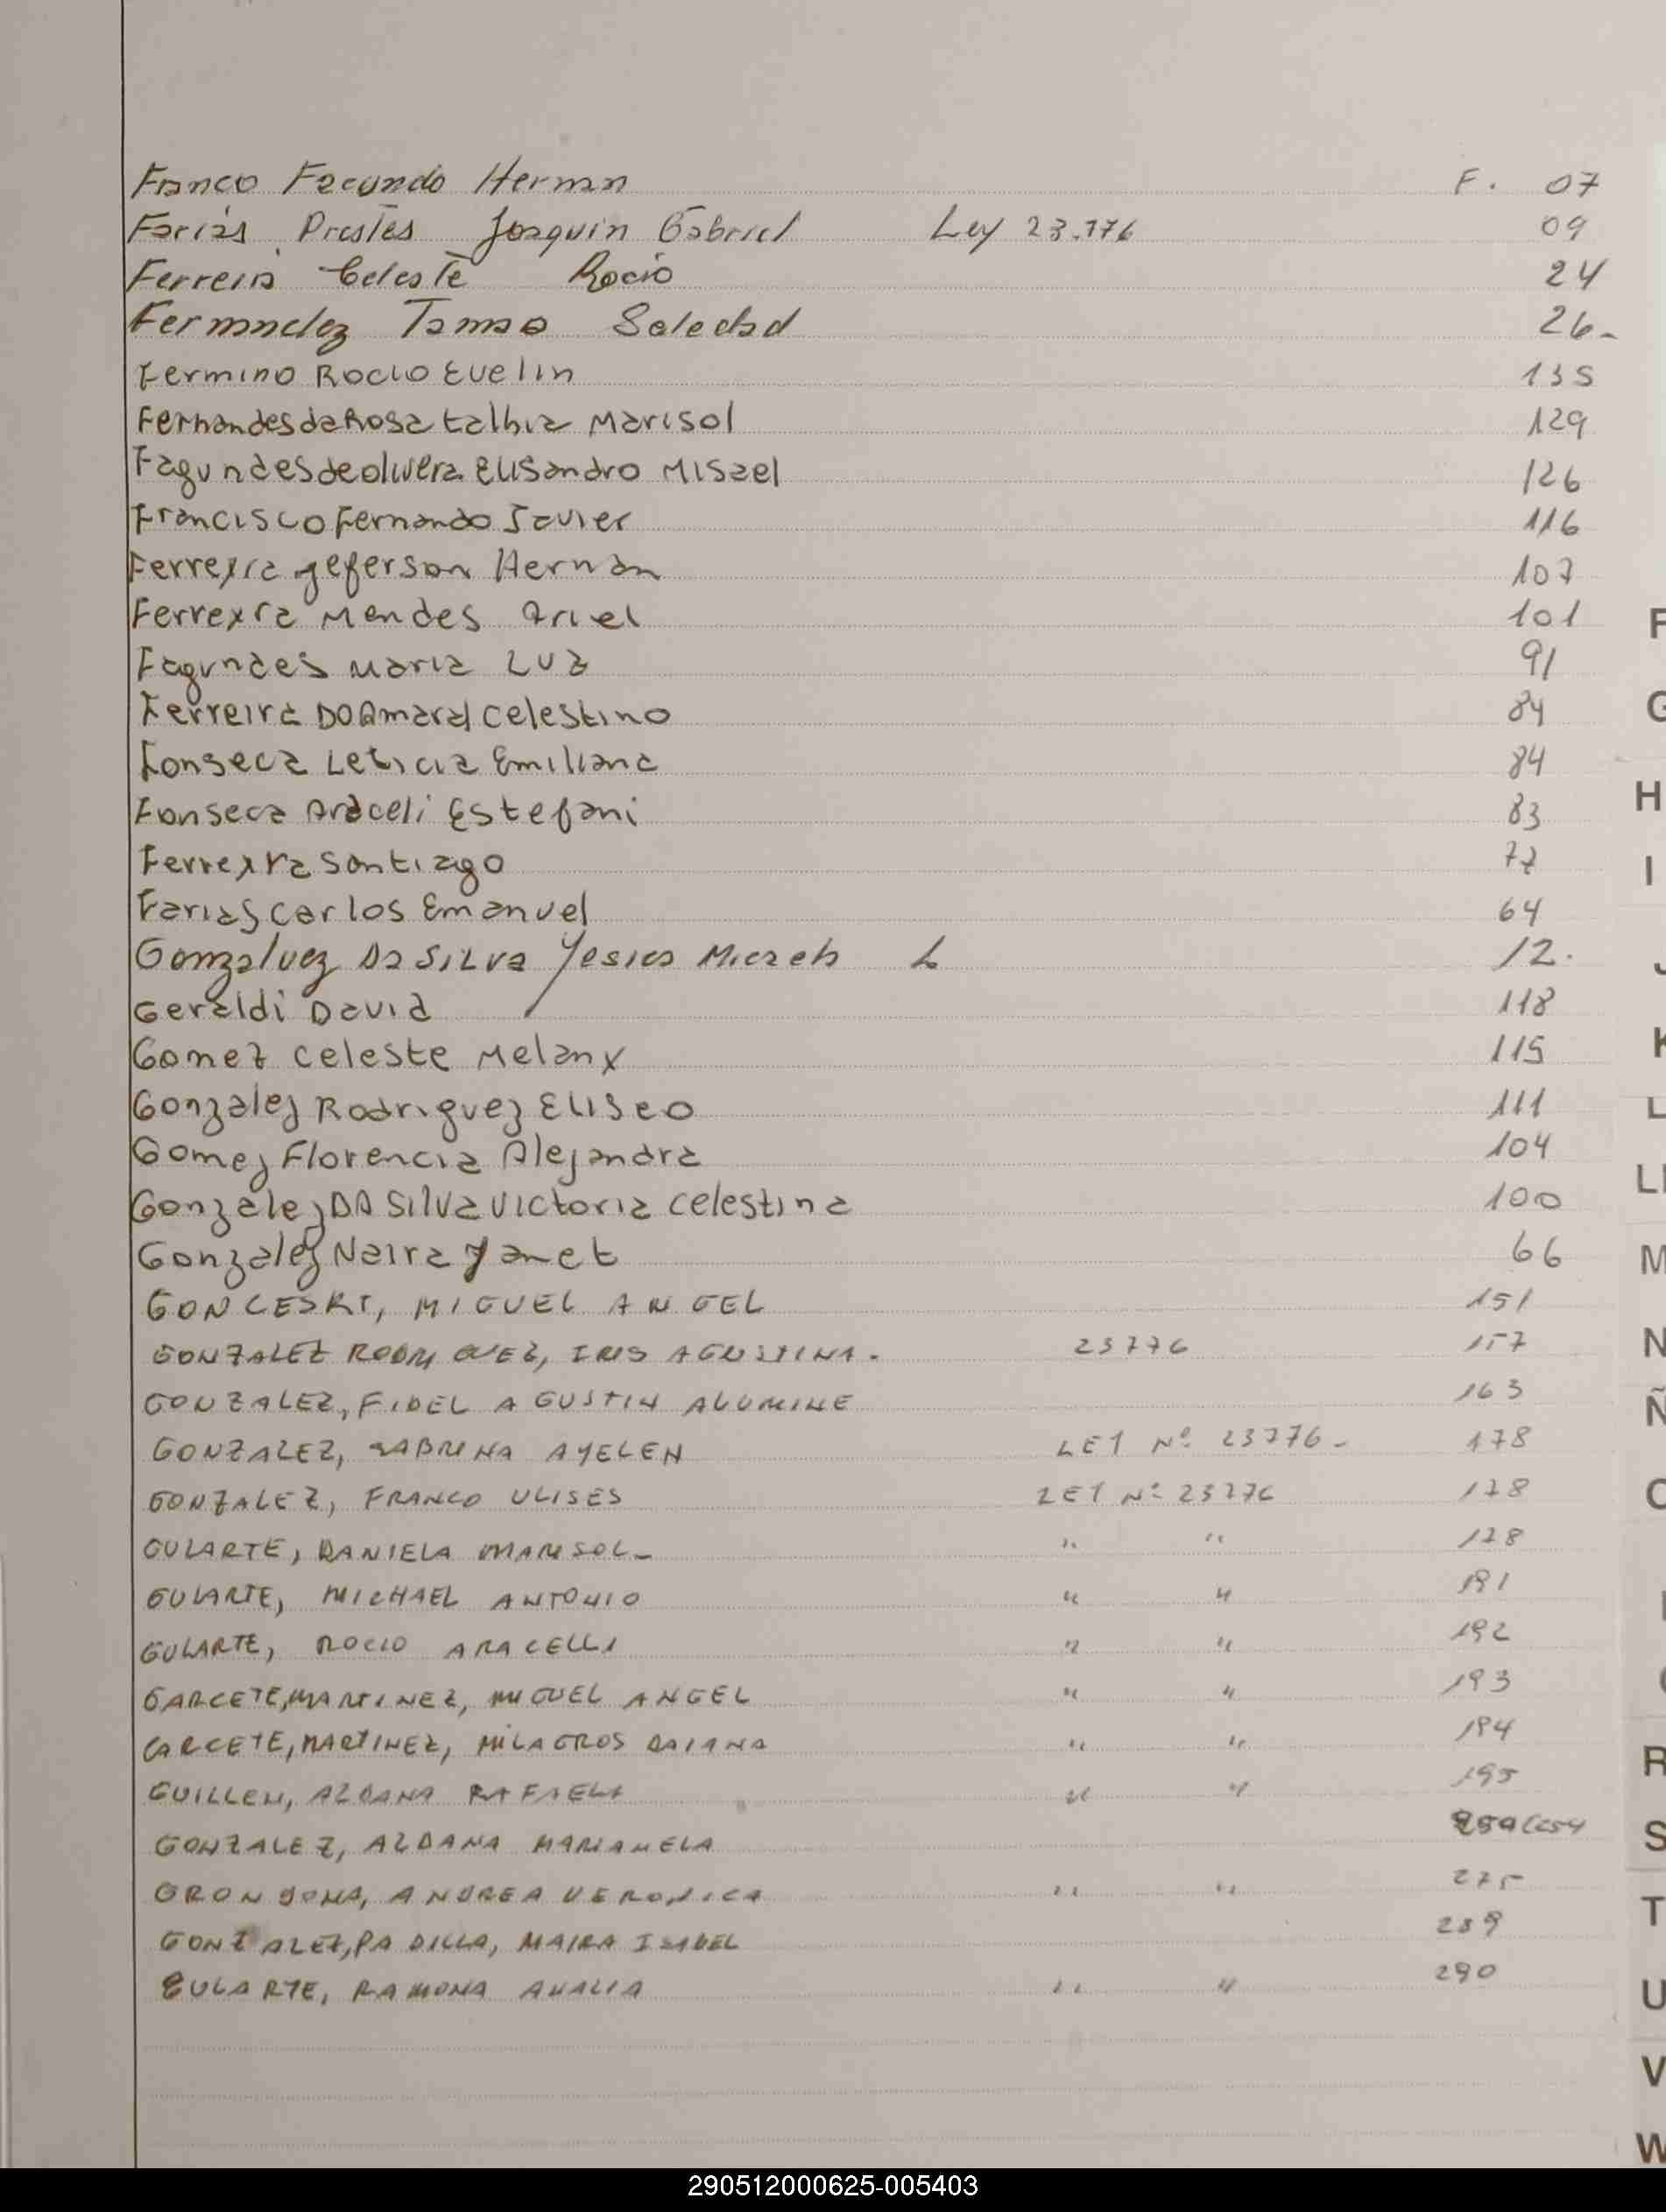 Franco Facundo Hernan F. 07
Farias Prestes Joaquin Gabriel Ley 23.776 09
Ferreira Celeste Rocio 24
Fernandez Soledad 26-
Fermino Rocio Evelin 135
Fernandes da Rosa talhia Marisol 129
Fagundes de olivera Elisandro Misael 126
Francisco Fernando Javier 116
Ferreyra geferson Hernan 107
Ferreyra Mendes Ariel 101
Fagundes Maria Luz 91
Ferreira DO Amaral Celestino 84
Fonseca Leticia Emiliana 84
Fonseca Araceli Estefani 83
Ferreyra Santiago 77
Farias Carlos Emanuel 64
Gonzalvez Da SILVa Yesica Micaela L 12.
Geraldi David 118
Gomez Celeste Melany 115
Gonzalez Rodriguez Eliseo 111
Gomez Florencia Alejandra 104
Gonzalez DA Silva Victoria Celestina 100
Gonzalez Naira Yanet 66
MIGUEL ANGEL 151
GONZALEZ RODRIGUEZ, IRIS AGUSTINA. 23776 157
GONZALEZ, FIDEL AGUSTIN ALUMINE 163
GONZALEZ, SABRINA AYELEN LEY Nº 23776- 178
GONZALEZ, FRANCO ULISES LEY Nº 23776 178
GULARTE, DANIELA MARISOL- " " 178
GULARTE, MICHAEL ANTONIO " " 191
GULARTE, ROCIO ARACELLI " " 192
GARCETE, MARTINEZ, MIGUEL ANGEL " " 193
GARCETE, MARTINEZ, MILAGROS DAIANA " " 194
GUILLEN, ALDANA RAFAELA " " 195
GONZALEZ, ALDANA MARIANELA
GRONDONA, ANDREA VERONICA " " 275
GONZALEZ, PADILLA, MAIRA ISABEL 289
GULARTE, RAMONA ANALIA " " 290
F
G
H
I
J
K
L
LL
M
N
Ñ
O
R
S
T
U
V
W
290512000625-005403